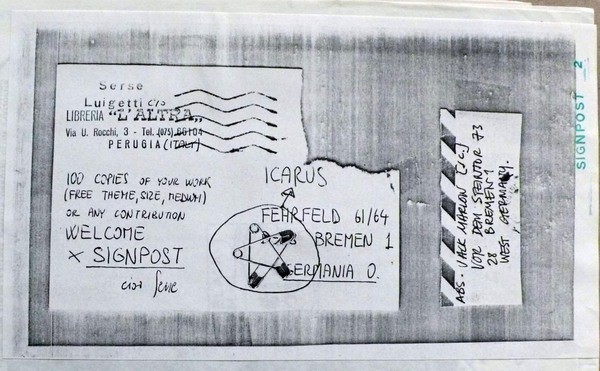 Serse
Luigetti c/o
LIBRERIA "L'ALTRA"
Via U. Rocchi, 3 - Tel. (075) 66104
PERUGIA (ITALY)
100 COPIES OF YOUR WORK
(FREE THEME, SIZE, MEDIUM)
OR ANY CONTRIBUTION
WELCOME
X SIGNPOST
ciao Serse
ICARUS
FEHRFELD 61/64
BREMEN 1
GERMANIA O.
ABS. JACK MARLOW (I.C.)
VOR DEM STEINTOR 73
28 BREMEN 1
WEST GERMANY.
SIGNPOST 2